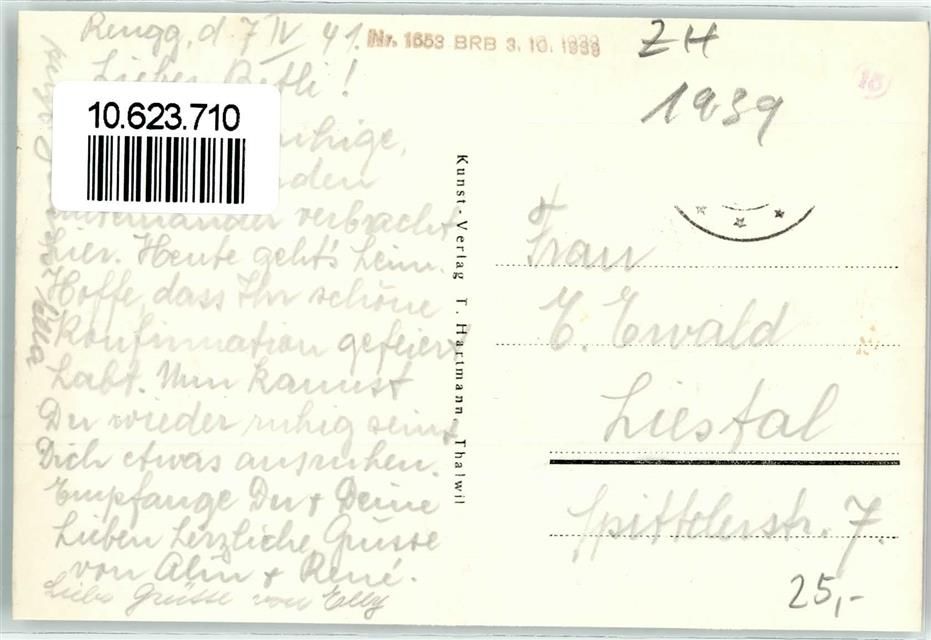 Rengg, d. 7 IV 41.
Nr. 1653 BRB 3. 10. 1939
ZH
1939
Lieber Betli!
10.623.710
ruhige,
verbracht
hier. Heute geht's heim.
Hoffe, dass Ihr schöne
Konfirmation gefeiert
habt. Nun kannst
Du wieder ruhig sein &
Dich etwas ausruhen.
Empfange Du + Deine
Lieben herzliche Grüsse
von Alin + René.
Liebe Grüsse von Elly
Kunst-Verlag T. Hartmann, Thalwil
Frau
E. Ewald
Liestal
Spittelerstr. 7.
25,-